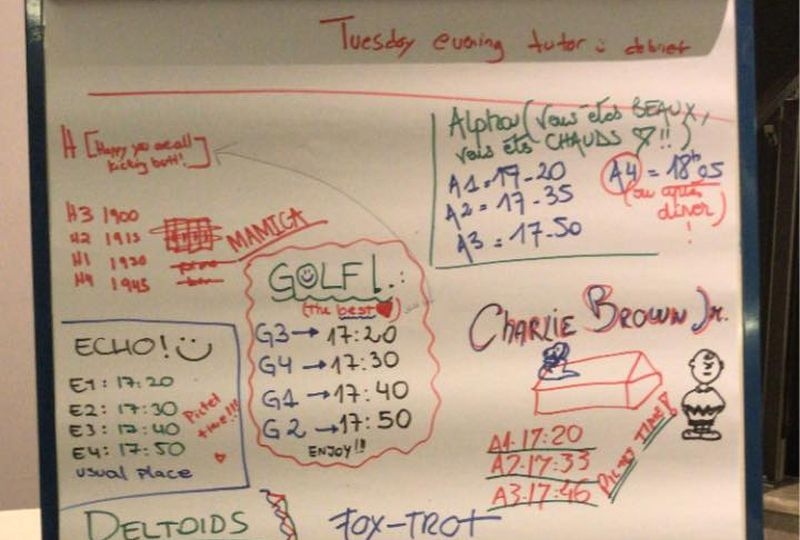 Tuesday evening tutor debrief
H [Happy you are all
kicking butt!]
H3 1900
H2 1915
H1 1930
H4 1945
MAMICA
Alpha (vous êtes BEAUX,
vous êtes CHAUDS ♡!!)
A1 = 17-20
A2 = 17-35
A3 = 17-50
A4 = 18h05
(ou après
dîner)
!
GOLF!
(the best ♥)
G3 → 17:20
G4 → 17:30
G1 → 17:40
G2 → 17:50
ENJOY!!!
ECHO!
E1: 17:20
E2: 17:30
E3: 17:40
E4: 17:50
usual place
time!!!
CHARLIE BROWN Jr.
A1:17:20
A2:17:33
A3:17:46
TIME!
DELTOIDS
FOX-TROT